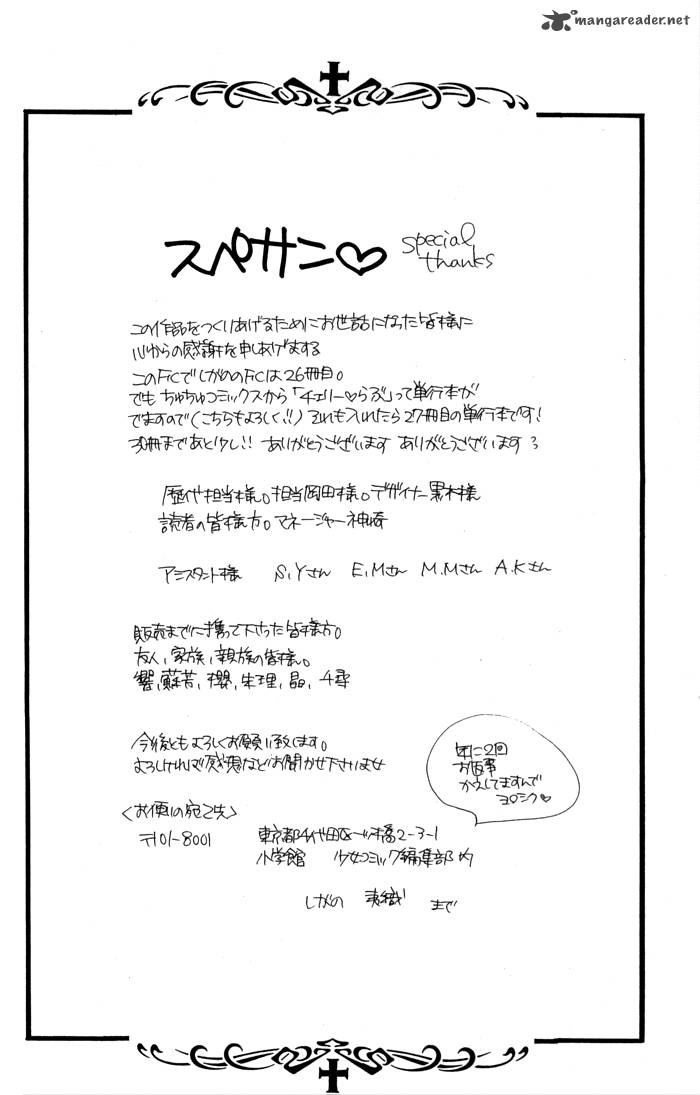 mangareader.net
スペサン♡ special
thanks
この作品をつくりあげるためにお世話になった皆様に
心からの感謝を申しあげまする
このFCでしがののFCは26冊目。
でも ちゅちゅコミックスから「チェリー♡らぶ」って単行本が
でますので(こちらもよろしく!!) それも入れたら27冊目の単行本です!
30冊まであと少し!! ありがとうございます ありがとうございます
歴代担当様。担当岡田様。デザイナー黒木様
読者の皆様方。マネージャー神崎
アシスタント様 S.Yさん E.Mさん M.Mさん A.Kさん
販売までに携って下さった皆様方。
友人、家族、親族の皆様。
響、蘇芳、櫻、朱理、晶、千尋
今後ともよろしくお願い致します。
よろしければ感想などお聞かせ下さいませ
年に2回
お返事
かえしてますんで
ヨロシク♡
<お便りの宛て先>
〒101-8001 東京都千代田区一ツ橋2-3-1
小学館 少女コミック編集部内
しがの 夷織 まで